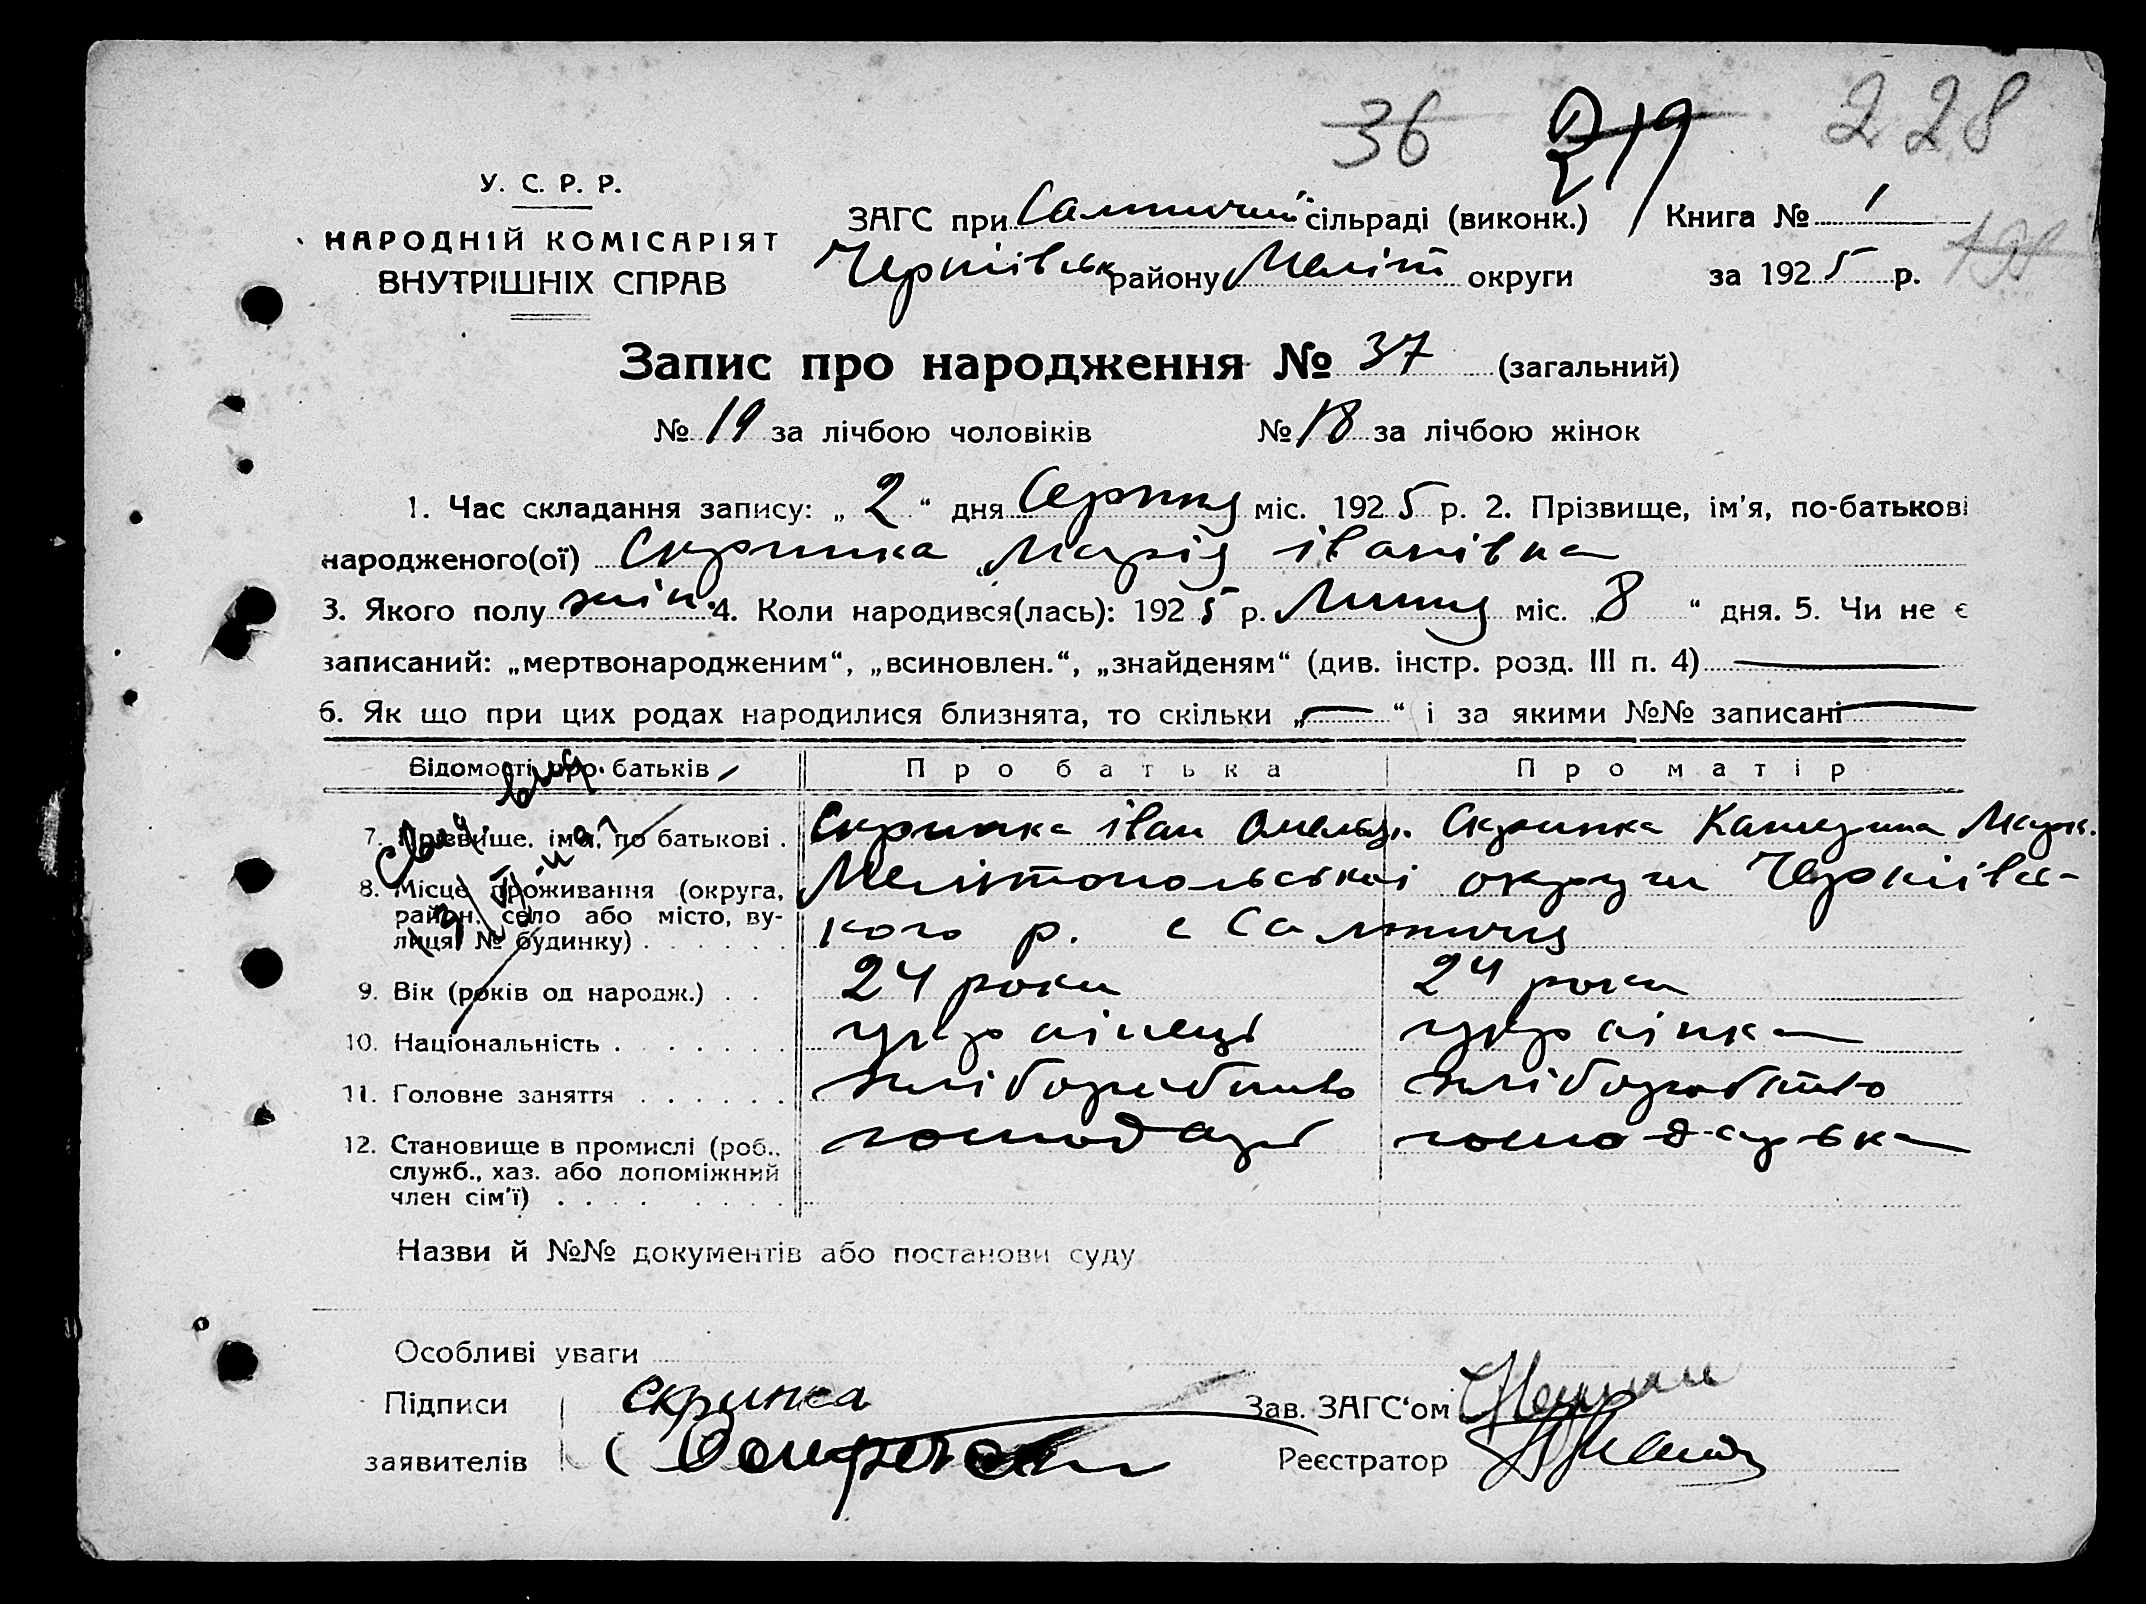 36 219 228
У. С. Р. Р.
НАРОДНІЙ КОМІСАРІЯТ
ВНУТРІШНІХ СПРАВ
ЗАГС при Салтичий сільраді (виконк.) Книга № 1
Черніівськ району Меліт округи за 1925 р. 198
Запис про народження № 37 (загальний)
№ 19 за лічбою чоловіків № 18 за лічбою жінок
1. Час складання запису: „ 2 “ дня Серпня міс. 1925 р. 2. Прізвище, ім'я, по-батькові
народженого(ої) Скрипка Марія іванівна
3. Якого полу жін. 4. Коли народився(лась): 1925 р. Липня міс. „8 “ дня. 5. Чи не є
записаний: „мертвонародженим“, „всиновлен.“, „знайденям“ (див. інстр. розд. III п. 4)
6. Як що при цих родах народилися близнята, то скільки „ “ і за якими №№ записані
Відомості про батьків Про батька Про матір
7. Прізвище, імя, по батькові . Скрипка іван Омельян. Скрипка Катерина Марк.
8. Місце проживання (округа, район, село або місто, вулиця, № будинку) Мелітопольської округи Черніівсь-
кого р. с Салтичя
9. Вік (років од народж.) . . 24 роки 24 роки
10. Національність . українець українка
11. Головне заняття хліборобство хліборобство
12. Становище в промислі (роб., господарь господарька
служб., хаз. або допоміжний
член сім'ї)
Назви й №№ документів або постанови суду
Особливі уваги
Підписи Скрипка Зав. ЗАГС‘ом
заявителів Реєстратор